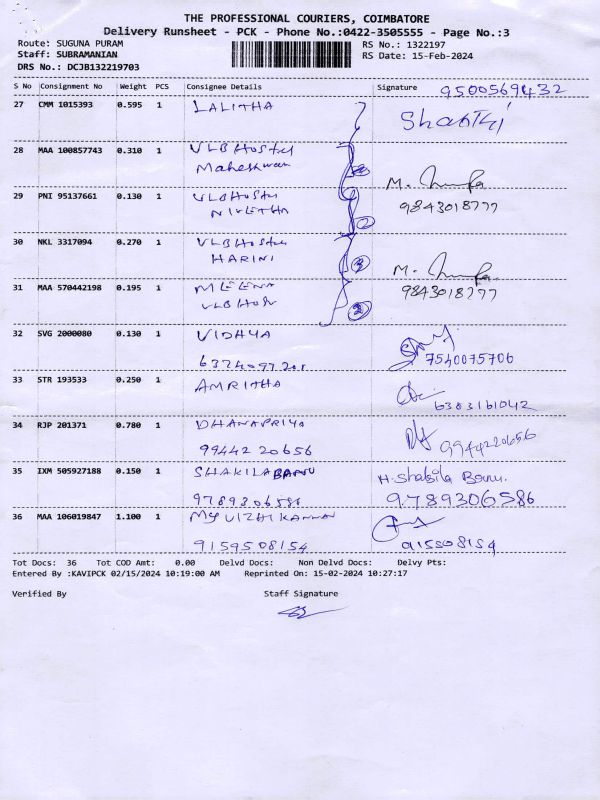 THE PROFESSIONAL COURIERS, COIMBATORE
Delivery Runsheet - PCK - Phone No.:0422-3505555 - Page No.:3
Route: SUGUNA PURAM RS No.: 1322197
Staff: SUBRAMANIAN RS Date: 15-Feb-2024
DRS No.: DCJB132219703
S No Consignment No Weight PCS Consignee Details Signature 9500569432
27 CMM 1015393 0.595 1 LALITHA Shakthi
28 MAA 100857743 0.310 1 VLB Hostel
Maheshwari M.
29 PNI 95137661 0.130 1 VLB Hostel 9843018777
NIVETHA
30 NKL 3317094 0.270 1 VLB Hostel
HARINI M.
31 MAA 570442198 0.195 1 MEENA 9843018777
VLB Hostel
32 SVG 2000080 0.130 1 VIDHYA
7540075706
33 STR 193533 0.250 1 AMRITHA
6383161042
34 RJP 201371 0.780 1 DHANAPRIYA
99442 20656 9944220656
35 IXM 505927188 0.150 1 SHAKILA BANU H. Shakila Banu.
9789306586 9789306586
36 MAA 106019847 1.100 1
9159508154 915508154
Tot Docs: 36 Tot COD Amt: 0.00 Delvd Docs: Non Delvd Docs: Delvy Pts:
Entered By :KAVIPCK 02/15/2024 10:19:00 AM Reprinted On: 15-02-2024 10:27:17
Verified By Staff Signature